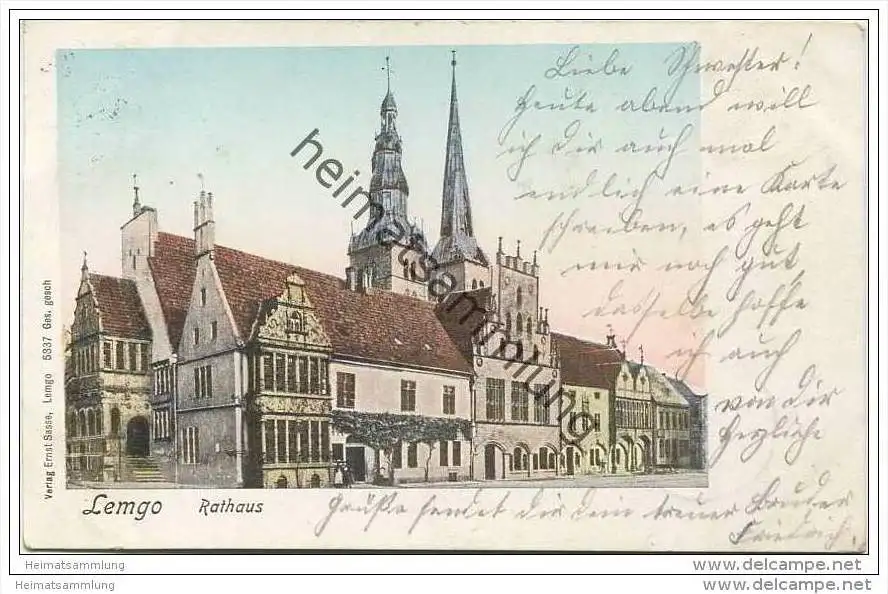 Liebe Schwester!
Heute abend will
ich Dir auch mal
endlich eine Karte
schreiben, es geht
mir noch gut
dasselbe hoffe
ich auch
von Dir
Herzliche
Grüße sendet Dir dein treuer Bruder
Friedrich.
Lemgo Rathaus
Verlag Ernst Sasse, Lemgo 5337 Ges. gesch
heimatsammlung
Heimatsammlung
Heimatsammlung
www.delcampe.net
www.delcampe.net